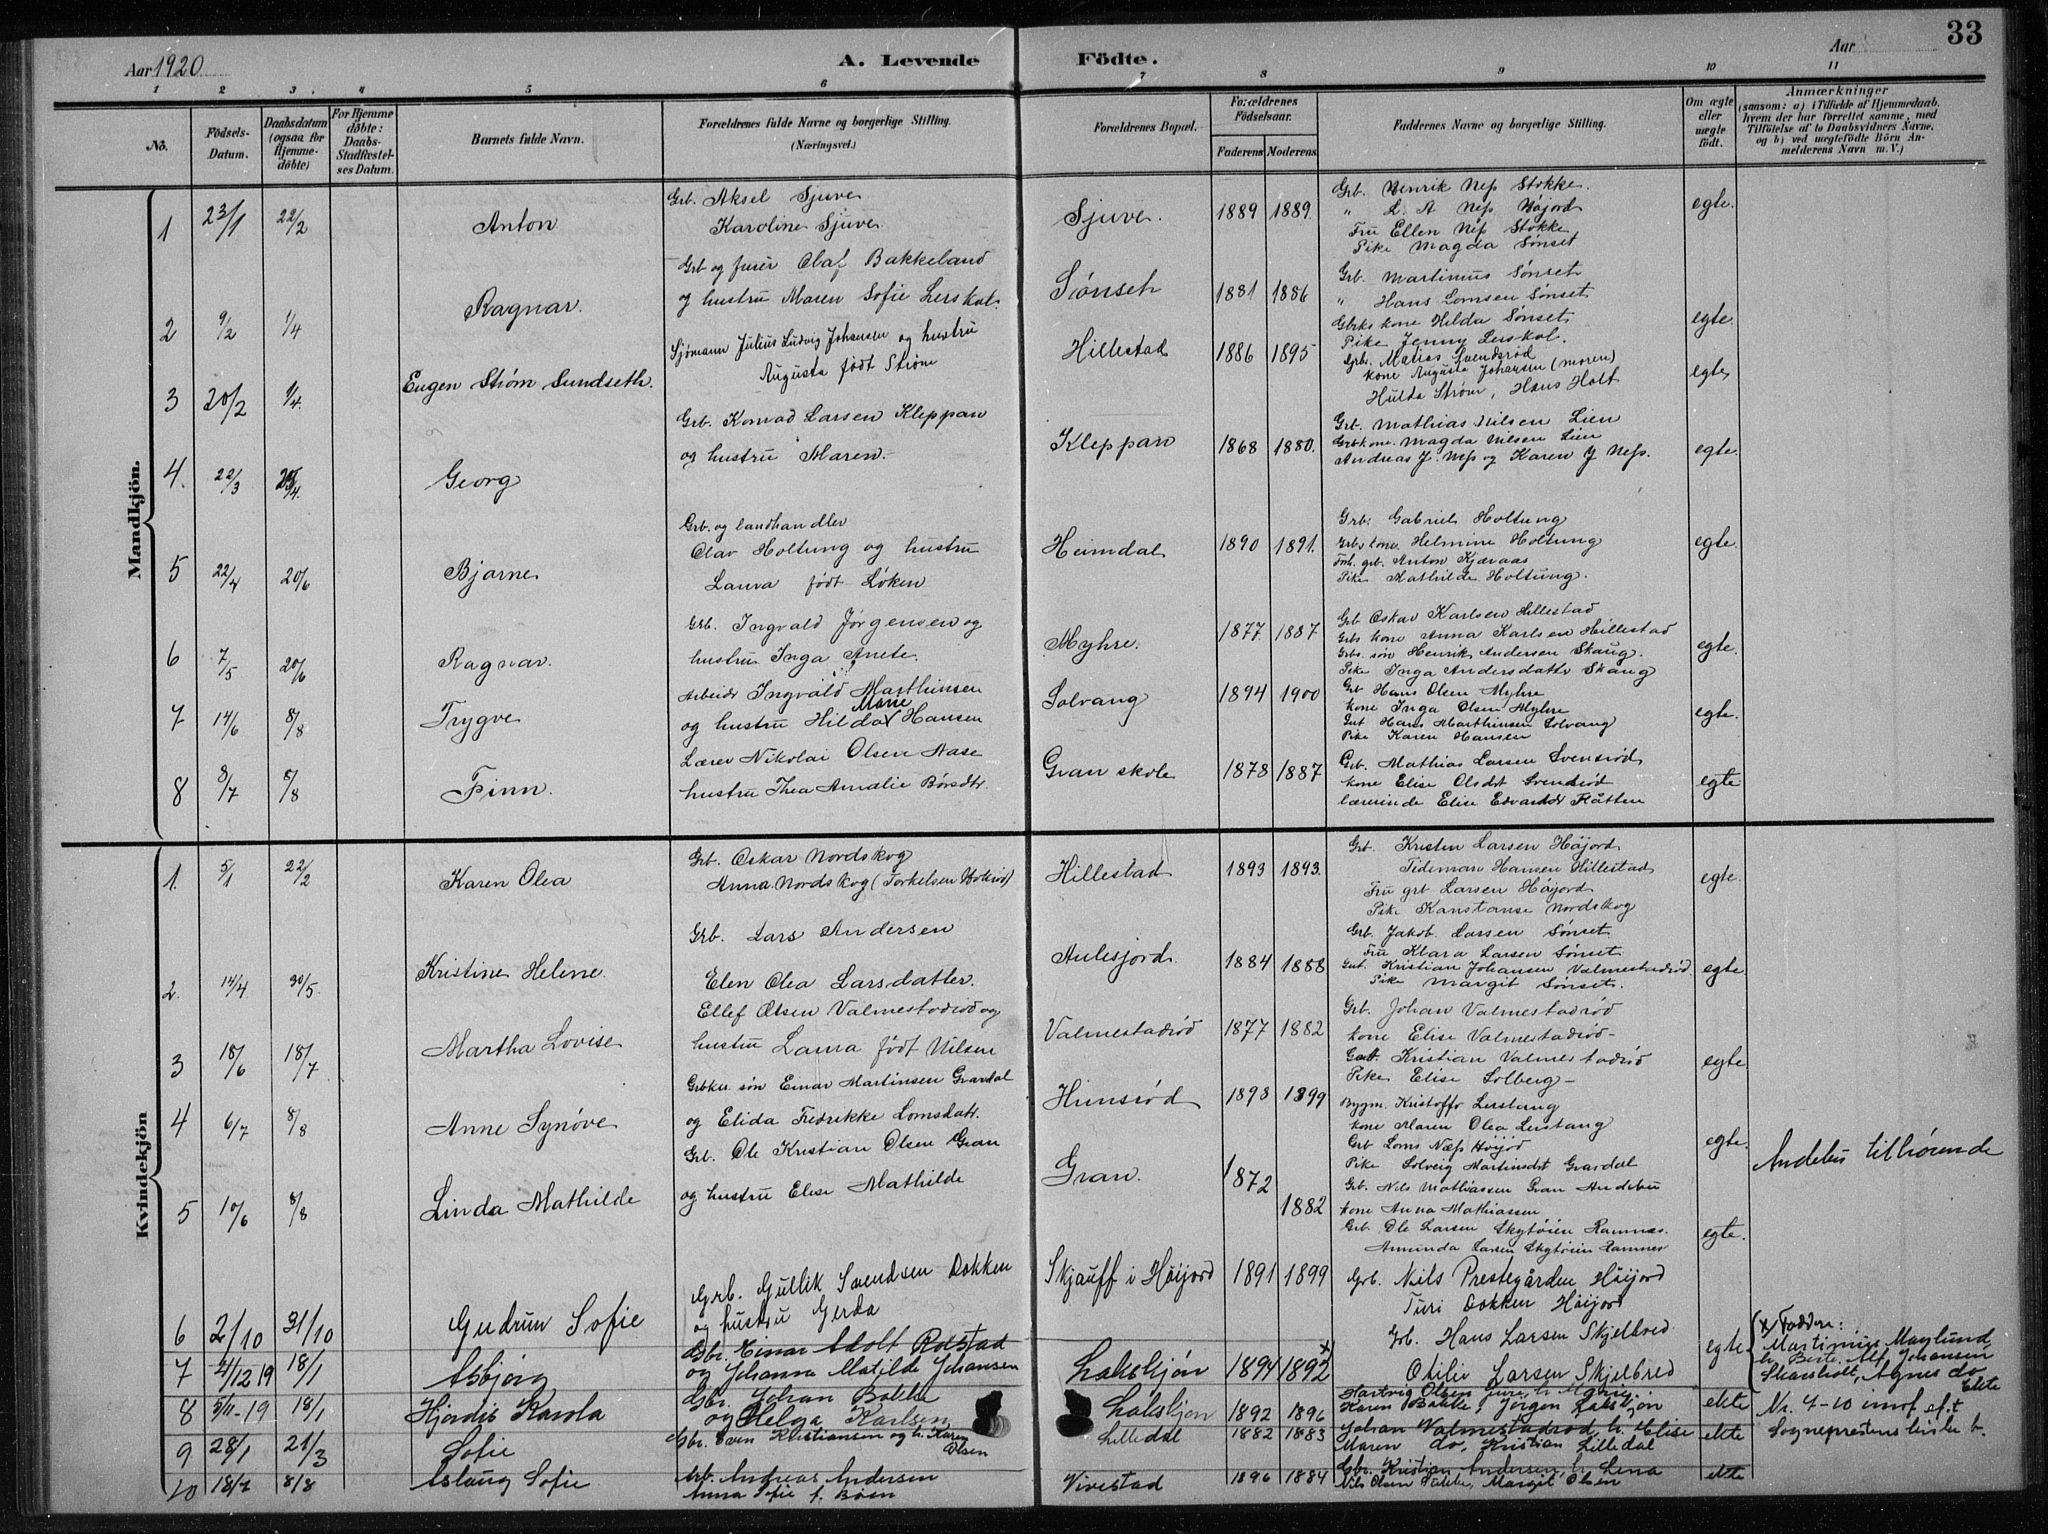 33
Aar 1920
A. Levende
Födte.
Aar
1 2 3 4 5 6 7 8 9 10 11
No.
Födsels-Datum.
Daabsdatum (ogsaa for Hjemmedöbte)
For Hjemmedöbte: Daabs-Stadfæstelses Datum.
Barnets fulde Navn.
Forældrenes fulde Navne og borgerlige Stilling.
(Næringsvei.)
Forældrenes Bopæl.
Forældrenes Födselsaar.
Faderens. Moderens.
Faddernes Navne og borgerlige Stilling.
Om ægte eller uægte födt.
Anmærkninger
(saasom: a) i Tilfælde af Hjemmedaab, hvem der har forrettet samme, med Tilföielse af to Daabsvidners Navne, og b) ved uægtefödte Börn Anmelderens Navn m. V.)
Mandkjön.
1 23/1 22/2 Anton
Grb. Aksel Sjuve
Karoline Sjuve
Sjuve. 1889 1889.
Grb. Henrik Nes Stokke.
" L. A Nes Højord
Fru Ellen Nes Stokke
Pike Magda Sønset
egte.
2 9/2 1/4 Ragnar.
Grb og furer Olaf Bakkeland
og hustru Maren Sofie Lerskal.
Sønset 1881 1886
Grb. Martinius Sønset
" Hans Lomsen Sønset
Gbrks kone Hilda Sønset
Pike Jenny Lerskal.
egte.
3 20/2 1/4 Eugen Strøm Sundseth.
Sjømann Julius Ludvig Johansen og hustru
Augusta født Strøm
Hillestad 1886 1895
Grb. Matias Svendsrød
kone Augusta Johansen (moren)
Hulda Strøm, Hans Holt
egte
4. 22/3 25/4. Georg
Grb. Konrad Larsen Kleppan
og hustru Maren.
Kleppan 1868 1880.
Grb. Mathias Nilsen Lien
Grbkone. Magda Nilsen Lien
Andreas J. Nes og Karen J Nes.
egte.
5 22/4 20/6 Bjarne
Grb. og landhandler
Olav Holtung og hustru
Laura født Løken
Heimdal 1890 1891.
Grb. Gabriel Holtung
Grbs kone Helmine Holtung
Fhv. grb. Anton Kjæraas
Pike Mathilde Holtung.
egte.
6 7/5 20/6 Ragnar.
Grb. Ingvald Jørgensen og
hustru Inga Anete.
Myhre. 1877 1887
Grb Oskar Karlsen Hillestad
Grbs kone Anna Karlsen Hillestad
Grbs. søn Henrik Andersen Skaug.
Pike Inga Andersdatter Skaug
egte.
7 14/6 8/8 Trygve
Arbeider Ingvald Marthinsen
og hustru Hilda Marie Hansen
Solvang 1894 1900
Grb Hans Olsen Myhre
kone Inga Olsen Myhre
Gut Hans Marthinsen Solvang
Pike Karen Hansen
egte.
8 8/7 8/8 Finn.
Lærer Nikolai Olsen Aase
hustru Thea Amalie Børsdtr.
Gran skole 1878 1887
Grb. Mathias Larsen Svensrød
kone Elise Olsdt Svendsrød
lærerinde Elise Edvardsdr Flåtten
egte
Kvindekjön
1. 5/1 22/2 Karen Olea
Grb. Oskar Nordskog
Anna Nordskog (Torkelsen)
Hillestad 1893 1893.
Grb. Kristen Larsen Høijord
Tideman Hansen Hillestad
Fru grb Larsen Høijord
Pike Konstanse Nordskog
egte.
2. 14/4 30/5. Kristine Helene.
Grb. Lars Andersen
Elen Olea Larsdatter.
Aulesjord. 1884 1888
Grb. Jakob Larsen Sønset
Fru Klara Larsen Sønset
Gut. Kristian Johansen Valmestadrød
Pike Margit Sønset.
egte
3 18/6 18/7 Martha Lovise
Ellef Olsen Valmestadrød og
hustru Laura født Nilsen
Valmestadrød 1877 1882
Grb. Johan Valmestadrød
kone Elise Valmestadrød
Gut. Kristian Valmestadrød
Pike Elise Solberg
egte
4 6/7 8/8 Anne Synøve
Grbkr. søn Einar Martinsen Gravdal
og Elida Fredrikke Lomsdatr.
Hunsrød 1898 1899
Bygm. Kristoffer Lerstang
kone Maren Olea Lerstang
Grb Loms Næss Høijord
Pike Solveig Martinsdt Gravdal
egte.
5 10/6 8/8 Linda Mathilde
Grb. Ole Kristian Olsen Gran
og hustru Elise Mathilde
Gran. 1872 1882
Grb. Nils Mathiassen Gran Andebu
kone Anna Mathiassen
Grb Ole Larsen Skytøien Ramnes.
Amunda Larsen Skytøien Ramnes
egte.
Andebu tilhørende
6 2/10 31/10 Gudrun Sofie
Grb. Gullik Svendsen Dokken
og hustru Gerda
Skjauff i Høijord 1891 1899
Grb. Nils Prestegården Høijord
Turi Dokken Høijord
Grb. Hans Larsen Skjelbred
Otilie Larsen Skjelbred
egte
7 4/12 19 18/1 Asbjørg
Gbr. Einar Adolf Rolstad
og Johanna Matilde Johansen
Lakskjøn 1894 1892 x
x/ Faddere:
Martinius Moglund,
h. Berte, Alf Johansen
Skarsholt, Agnes do
Ekte
8 5/11-19 18/1 Hjørdis Karola
Gbr. Johan Bakke
og Helga Karlsen
Lakskjøn 1892 1896
Hartvig Olsen
Karen Bakke, Jørgen Lakskjøn
ekte
Nr. 7-10 innf. eft
Sogneprestens liste b.
9 28/1 21/3 Sofie
Gbr. Even Kristiansen og h. Karen
Olsen
Lilledal 1882 1883
Johan Valmestadrød, h. Elise
Maren do, Kristian Lilledal
ekte
10 18/7 8/8 Aslaug Sofie
Arb. Andreas Andersen
Anna Sofie f. Børn
Vivestad 1896 1884
Gbr. Kristian Andersen, h. Lena
Nils Olsen, Margit Olsen
ekte